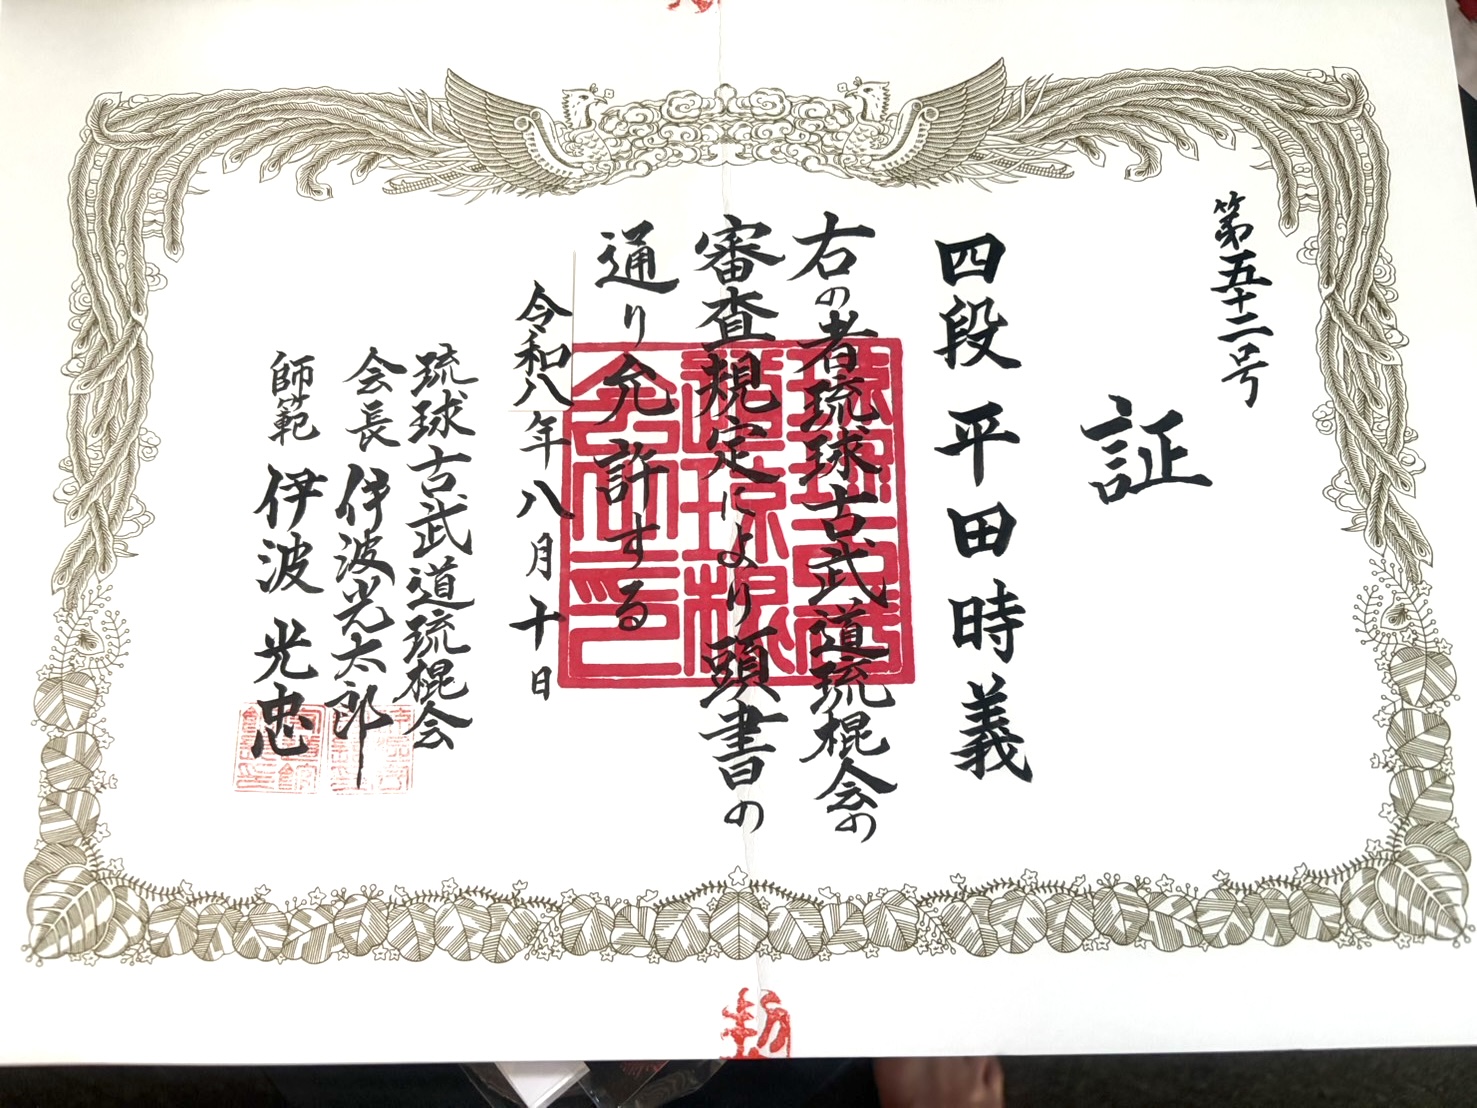 第五十二号
証
四段 平田時義
右の者琉球古武道琉棍会の
審査規定により頭書の
通り允許する
令和八年八月十日
琉球古武道琉棍会
会長 伊波光太郎
師範 伊波光忠